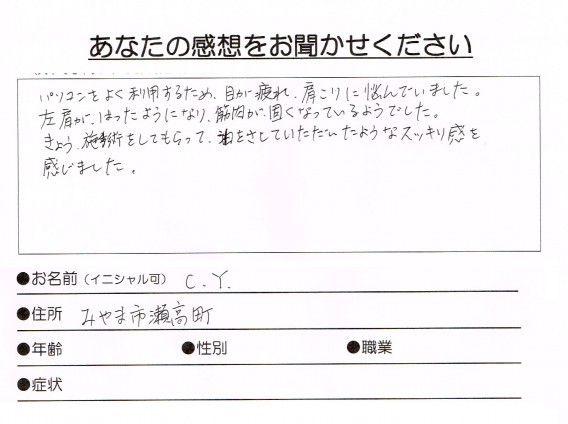 あなたの感想をお聞かせください
パソコンをよく利用するため、目が疲れ、肩こりに悩んでいました。
左肩が、はったようになり、筋肉が、固くなっているようでした。
きょう、施術をしてもらって、油をさしていただいたようなスッキリ感を
感じました。
●お名前（イニシャル可） C.Y.
●住所 みやま市瀬高町
●年齢 ●性別 ●職業
●症状